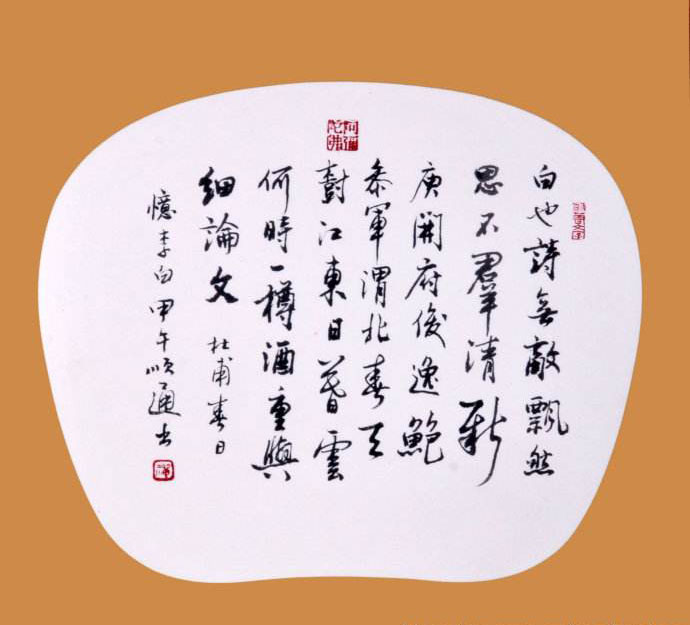 阿彌陀佛
白也詩無敵飄然
思不羣清新
庾開府俊逸鮑
參軍渭北春天
樹江東日暮雲
何時一樽酒重與
細論文 杜甫春日
憶李白甲午順通書